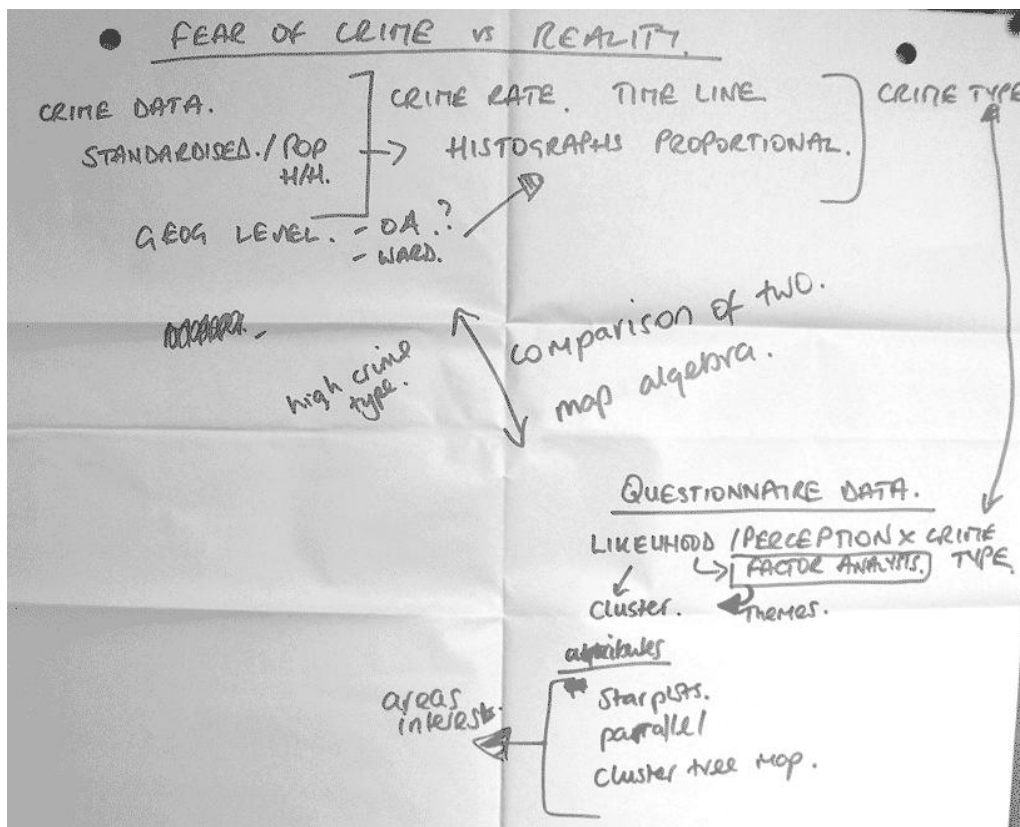 FEAR OF CRIME vs REALITY.
CRIME DATA.
STANDARDISED. / POP
H/H.
GEOG LEVEL. - OA .?
- WARD.
CRIME RATE. TIME LINE
HISTOGRAPHS PROPORTIONAL.
CRIME TYPE
high crime
type.
comparison of two.
map algebra.
QUESTIONNAIRE DATA.
LIKELIHOOD / PERCEPTION x CRIME
TYPE.
FACTOR ANALYSIS.
Cluster.
Themes.
attributes
Starplots.
parrallel
Cluster tree map.
areas
interests.